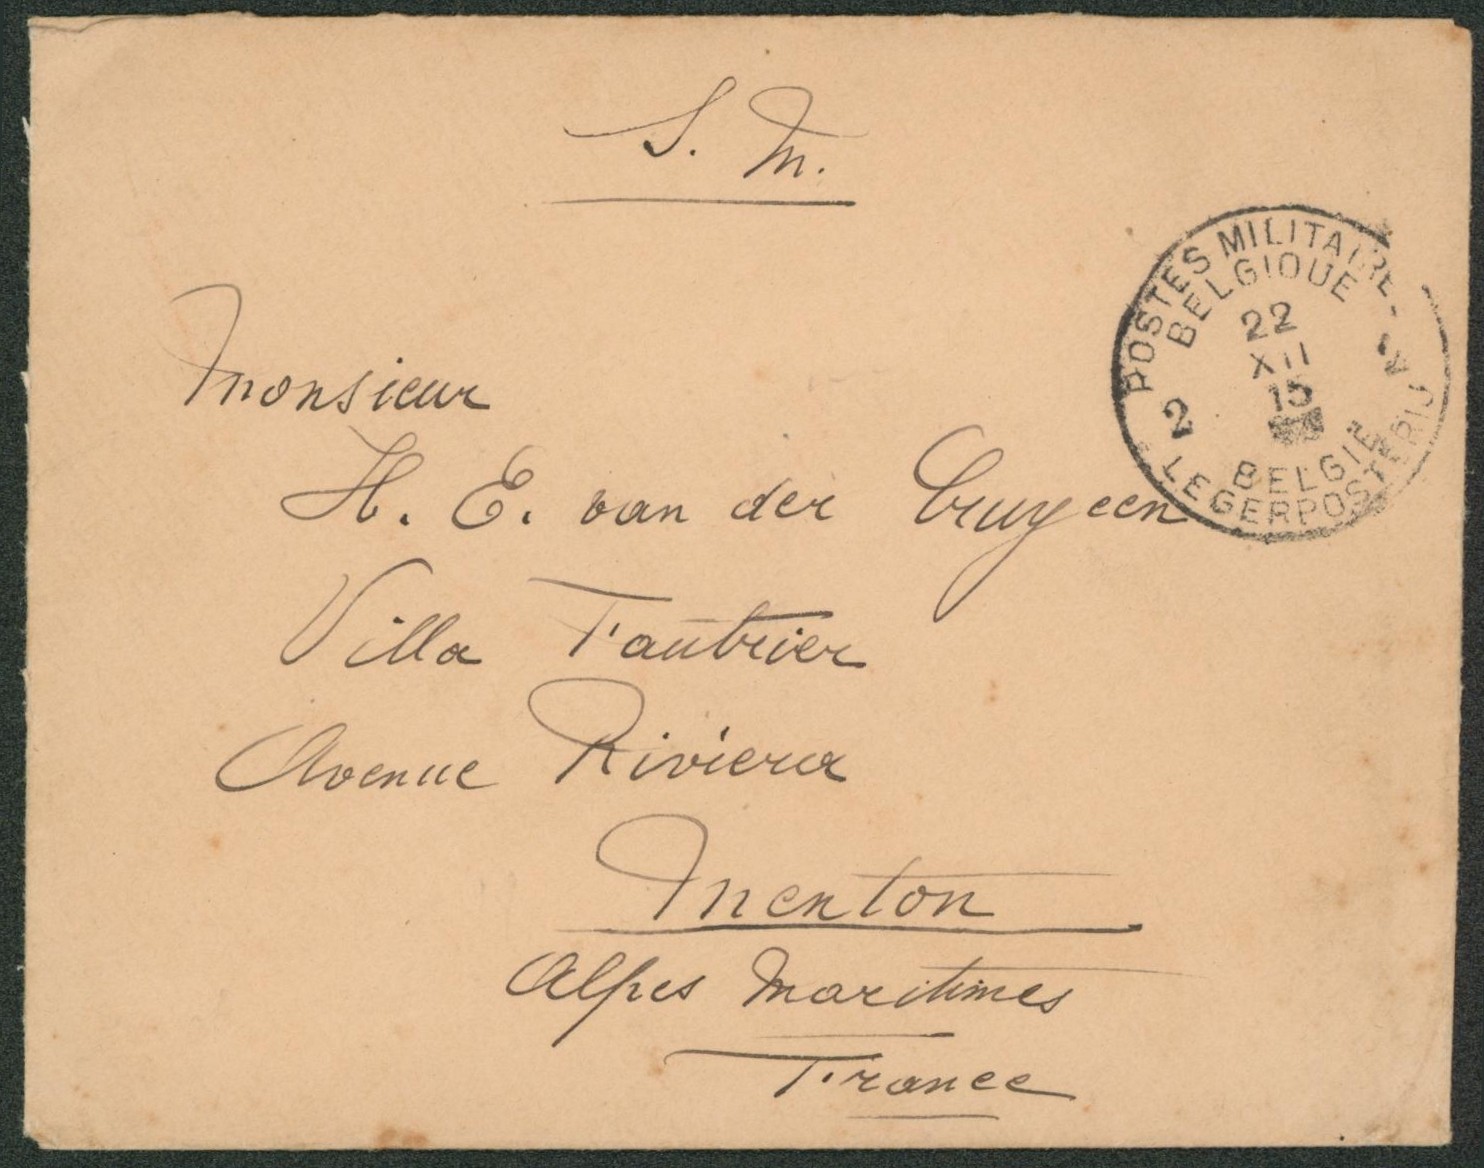 S. M.
POSTES MILITAIRES
BELGIQUE
22
XII
15
2 2
BELGIE
LEGERPOSTERIJ
Monsieur
H. E. van der Cruyeen
Villa Fautrier
Avenue Riviera
Menton
Alpes Maritimes
France